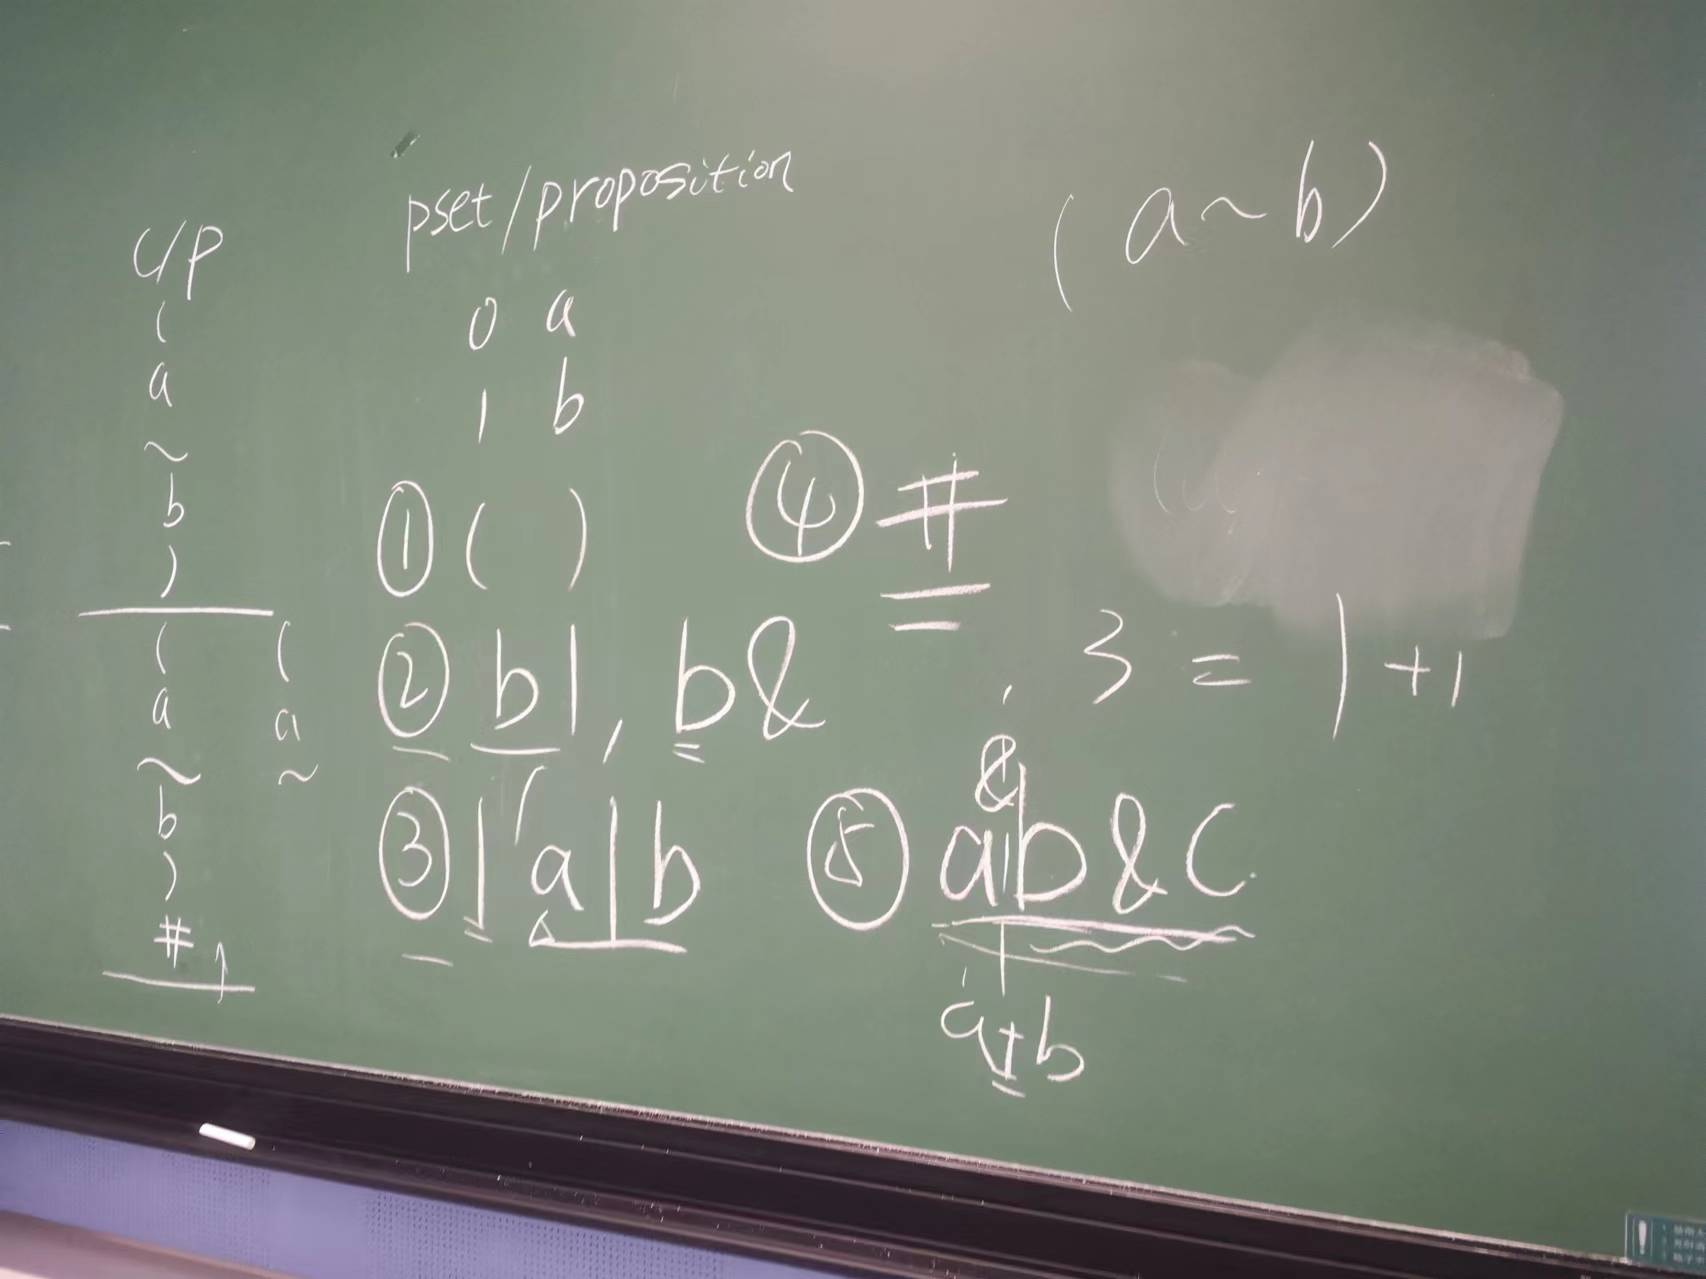 c/p
(
a
~
b
)
(
a
~
b
)
#↑
(
a
~
pset/proposition
0 a
1 b
① ( )
② b|, b&
③ | a | b
④ #
(a~b)
3 = 1+1
&
⑤ a|b&c
a+b